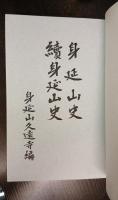 身延山史
續身延山史
身延山久遠寺編